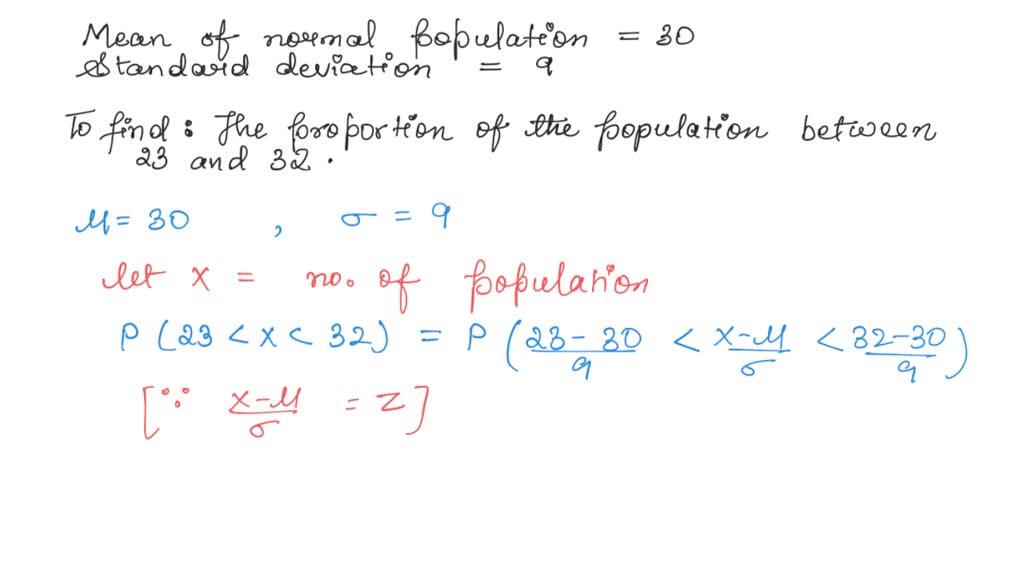 Mean of normal population = 30
Standard deviation = 9
To find : The proportion of the population between
23 and 32 .
μ = 30 , σ = 9
let x = no. of population
P (23 < x < 32) = P ( (23 - 30)/9 < (x-μ)/σ < (32-30)/9 )
[∵ (x-μ)/σ = z]